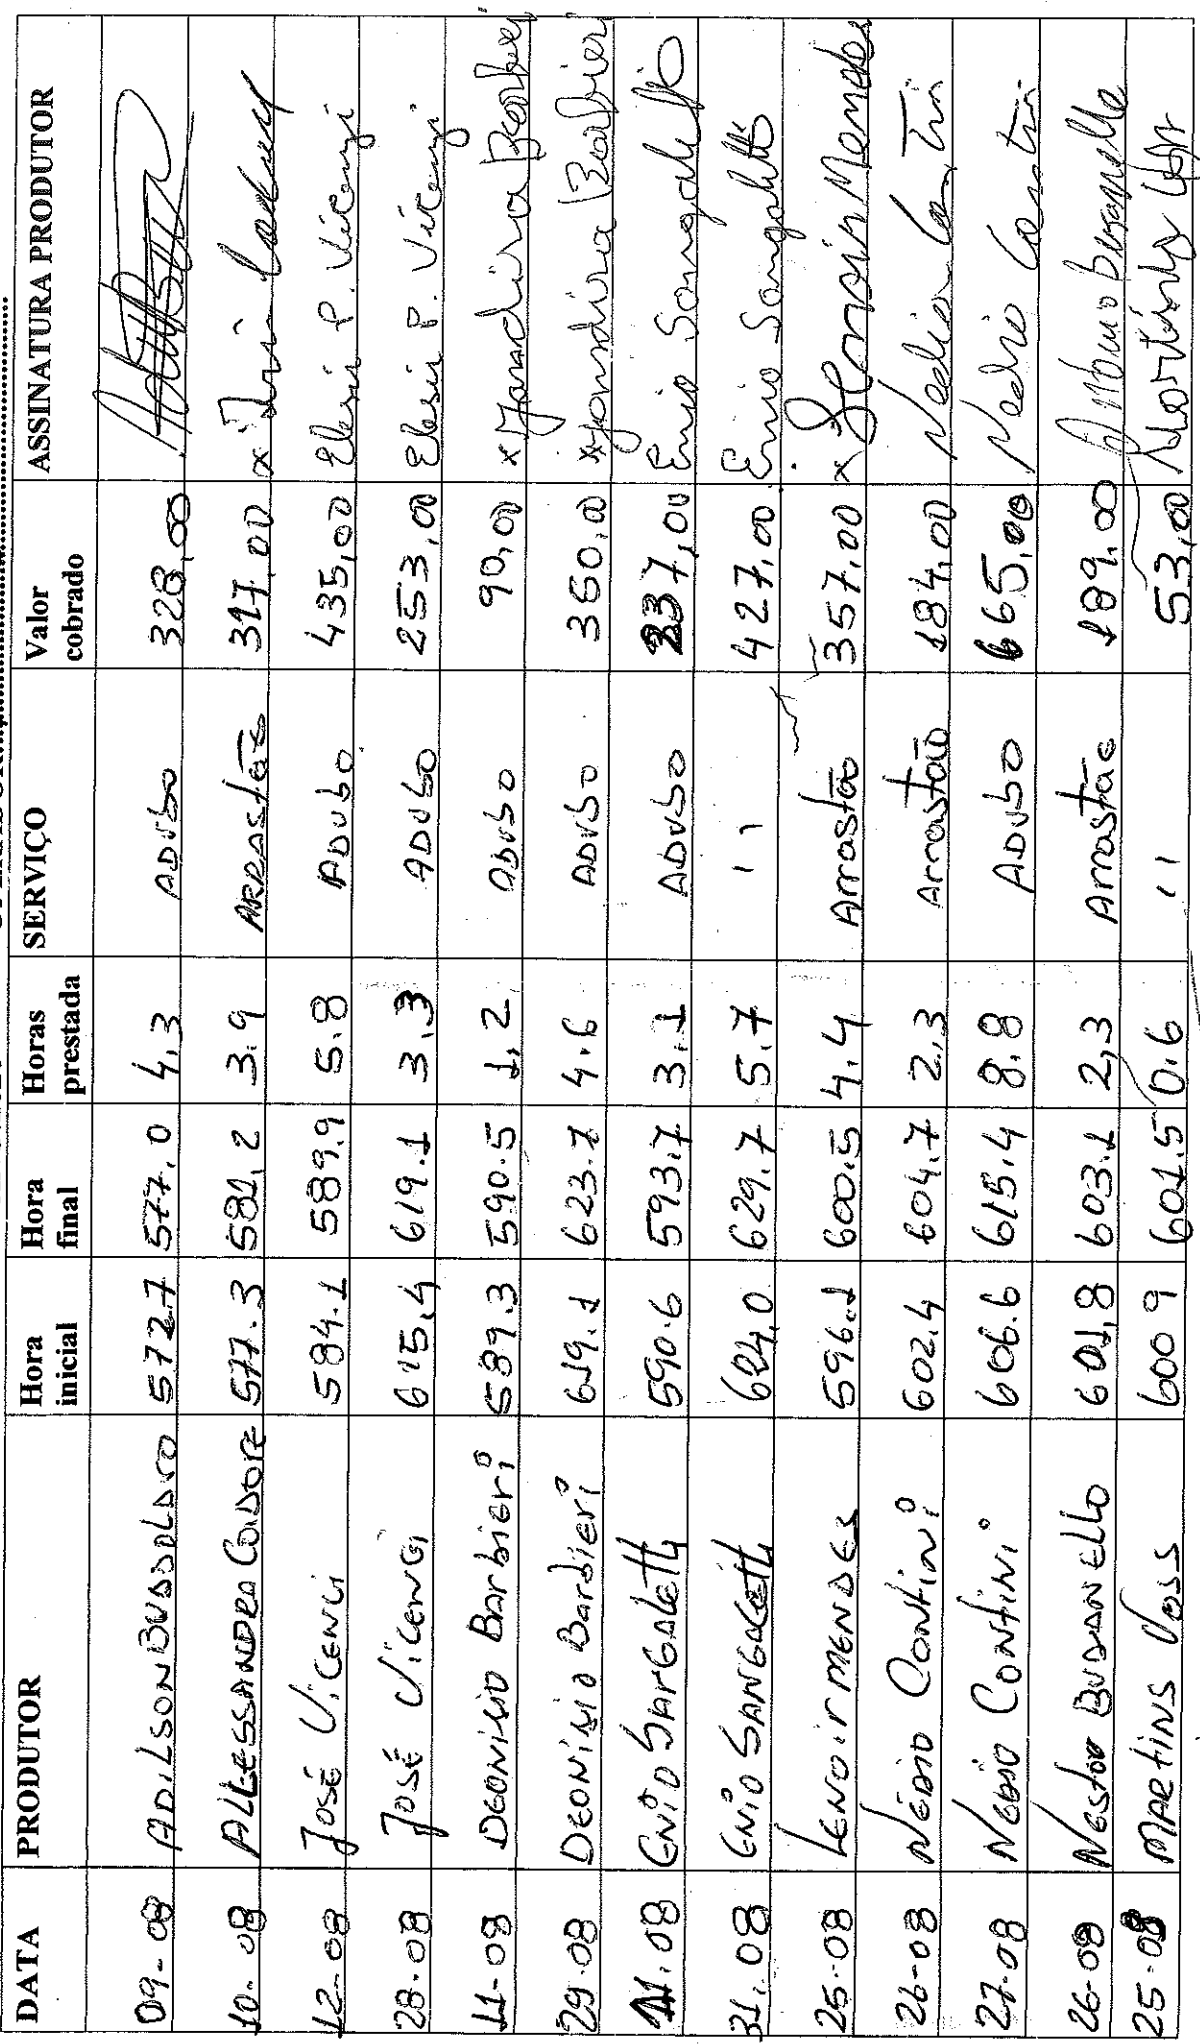 DATA PRODUTOR Hora inicial Hora final Horas prestada SERVIÇO Valor cobrado ASSINATURA PRODUTOR
09-08 ADILSON BUDOLARO 572.7 577.0 4,3 ADUBO 328,00
10-08 ALLESSANDRO CADORE 577.3 581,2 3.9 ARRASTÃO 317,00 x
12-08 JOSÉ VICENCI 584.1 589.9 5.8 ADUBO 435,00 Elesir P. Vicenzi
28-08 JOSÉ VICENGI 615,4 619.1 3,3 ADUBO 253,00 Elesir P. Vicenzi
11-08 DEONISIO BARBIERI 589.3 590.5 1,2 ADUBO 90,00 x Jandira Barbieri
29-08 DEONISIO BARBIERI 619.1 623.7 4.6 ADUBO 350,00 x Jandira Barbieri
11.08 ENIO SANGALETTI 590.6 593.7 3.1 ADUBO 237,00 Enio Sangaletti
31.08 ENIO SANGALETTI 624,0 629.7 5.7 '' 427,00 Enio Sangaletti
25-08 LENOIR MENDES 596.1 600.5 4.4 Arrastão 357,00 x Lenoir Mendes
26-08 NÉDIO CONTINI 602.4 604.7 2,3 Arrastão 184,00 Nedio Contini
27-08 NEDIO CONTINI 606.6 615.4 8.8 ADUBO 665,00 Nedio Contini
26-08 NESTOR BUDANELLO 601,8 603.1 2,3 Arrastão 189.00
25-08 MARTINS VOSS 600 9 601.5 0.6 '' 53,00